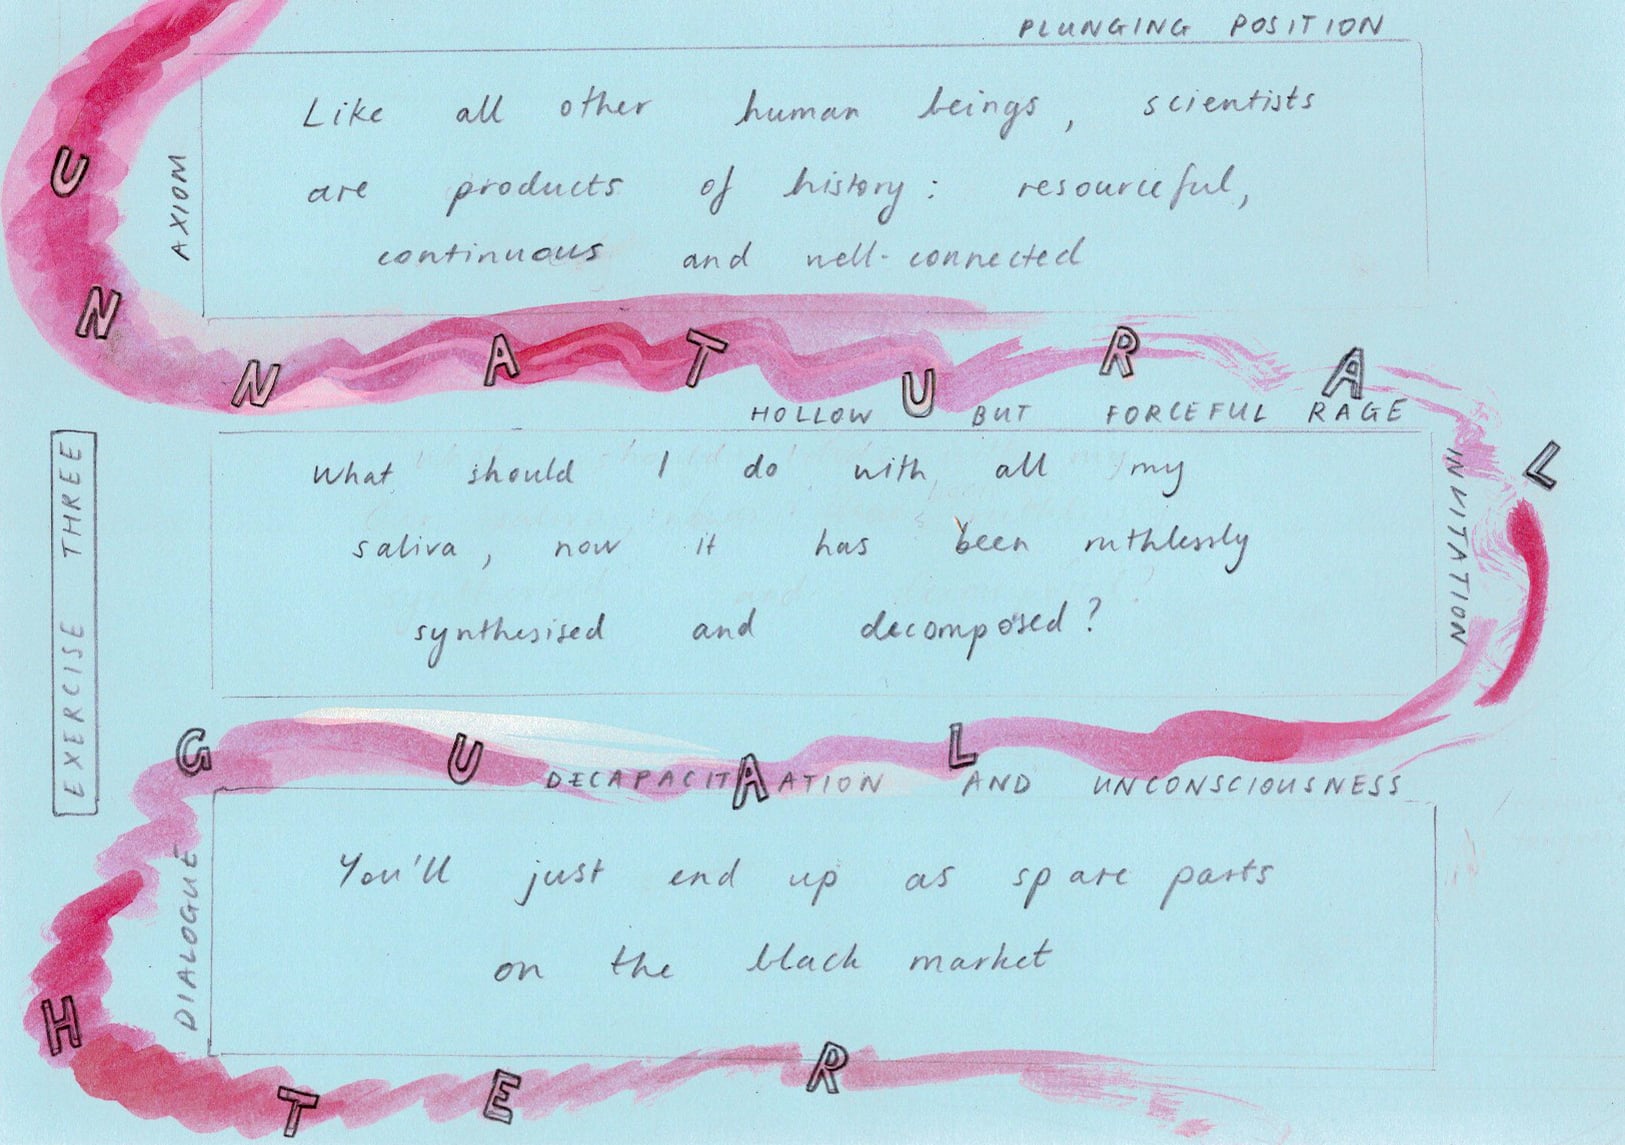 PLUNGING POSITION
AXIOM
Like all other human beings, scientists
are products of history: resourceful,
continuous and well-connected
UNNATURAL
HOLLOW BUT FORCEFUL RAGE
EXERCISE THREE
What should I do with all my
saliva, now it has been ruthlessly
synthesised and decomposed?
INVITATION
LAUGHTER
DECAPACITATION AND UNCONSCIOUSNESS
DIALOGUE
You'll just end up as spare parts
on the black market